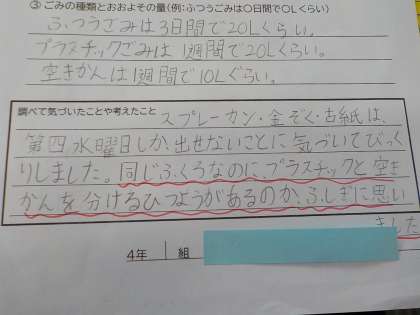 ③ ごみの種類とおおよその量(例:ふつうごみは〇日間で〇Lくらい)
ふつうごみは3日間で20Lくらい。
プラスチックごみは1週間で20Lくらい。
空きかんは1週間で10Lぐらい。
調べて気づいたことや考えたこと スプレーカン・金ぞく・古紙は、
第四水曜日しか、出せないことに気づいてびっく
りしました。同じふくろなのに、プラスチックと空き
かんを分けるひつようがあるのか、ふしぎに思い
ました
4年 組